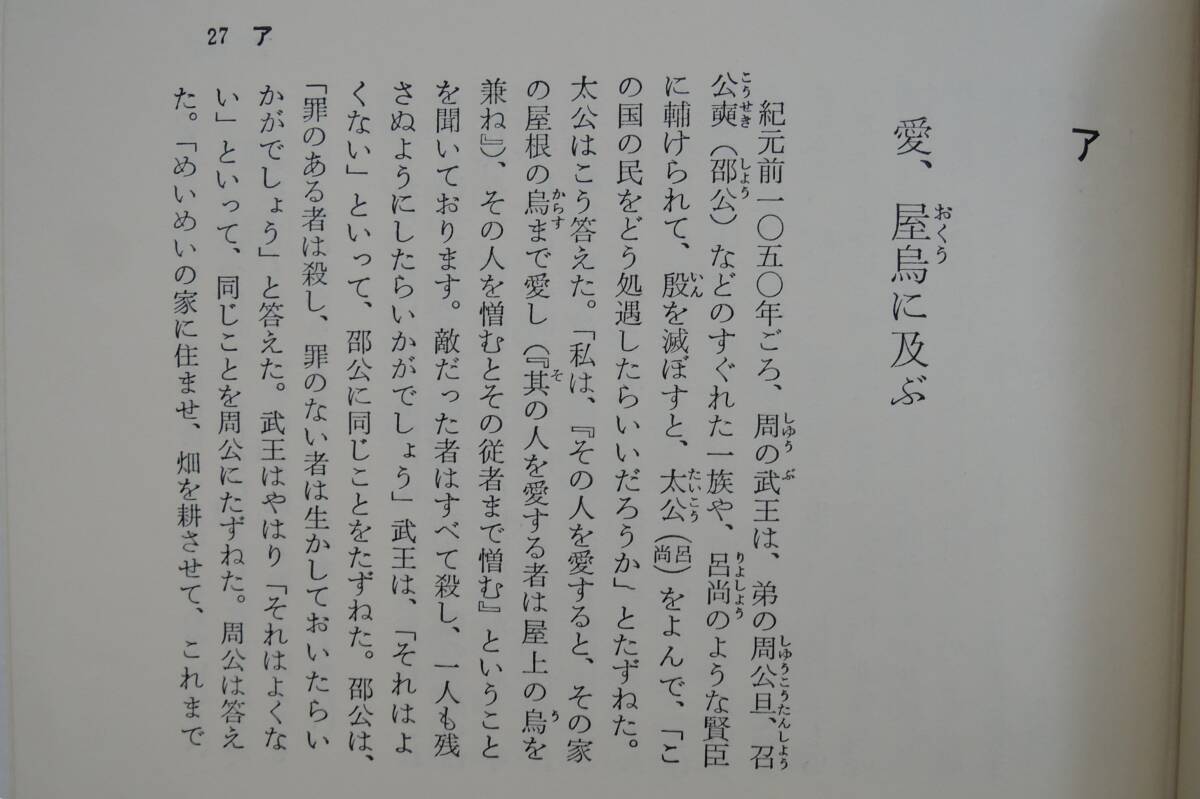 27 ア
ア
愛、屋烏に及ぶ
おくう
紀元前一〇五〇年ごろ、周の武王は、弟の周公旦、召
しゆう ぶ しゆうこうたんしよう
公奭（邵公）などのすぐれた一族や、呂尚のような賢臣
こうせき しよう りよしよう
に輔けられて、殷を滅ぼすと、太公（呂尚）をよんで、「こ
いん たいこう
の国の民をどう処遇したらいいだろうか」とたずねた。
太公はこう答えた。「私は、『その人を愛すると、その家
の屋根の烏まで愛し（『其の人を愛する者は屋上の烏を
からす そ う
兼ね』）、その人を憎むとその従者まで憎む』ということ
を聞いております。敵だった者はすべて殺し、一人も残
さぬようにしたらいかがでしょう」武王は、「それはよ
くない」といって、邵公に同じことをたずねた。邵公は、
「罪のある者は殺し、罪のない者は生かしておいたらい
かがでしょう」と答えた。武王はやはり「それはよくな
い」といって、同じことを周公にたずねた。周公は答え
た。「めいめいの家に住ませ、畑を耕させて、これまで